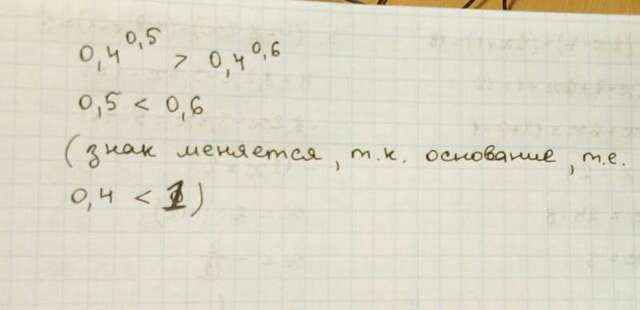 0,4^0,5 > 0,4^0,6
0,5 < 0,6
(знак меняется, т.к. основание, т.е.
0,4 < 1)